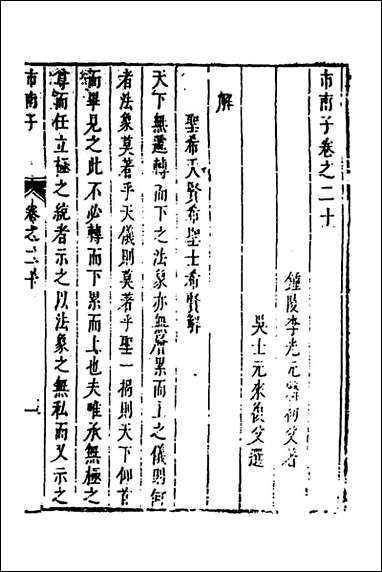 市南子卷之二十
鍾陵李光元 初父著
吳士元來復父選
解
聖希天賢希聖士希賢解
天下無遞轉而下之法象亦無層累而上之儀則何
者法象莫著乎天儀則莫著乎聖一揭則天下仰首
而畢見之此不必轉而下累而上也夫唯承無極之
尊而任立極之統者示之以法象之無私而又示之
市南子
卷之二十
一